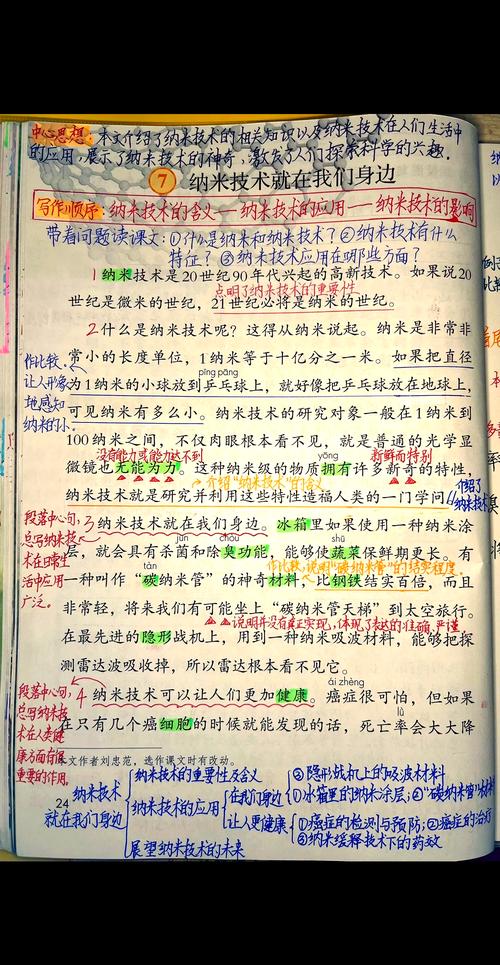 中心思想:本文介绍了纳米技术的相关知识以及纳米技术在人们生活中
的应用,展示了纳米技术的神奇,激发了人们探索科学的兴趣.
7 纳米技术就在我们身边
写作顺序:纳米技术的含义——纳米技术的应用——纳米技术的影响
带着问题读课文:①什么是纳米和纳米技术?②纳米技术有什么
特征?③纳米技术应用在哪些方面?
1纳米技术是20世纪90年代兴起的高新技术。如果说20
点明了纳米技术的重要性
世纪是微米的世纪,21世纪必将是纳米的世纪。
2什么是纳米技术呢?这得从纳米说起。纳米是非常非
常小的长度单位,1纳米等于十亿分之一米。如果把直径
作比较.
让人形象
地感知
纳米的小.
pīng pāng
为1纳米的小球放到乒乓球上,就好像把乒乓球放在地球上,
可见纳米有多么小。纳米技术的研究对象一般在1纳米到
100纳米之间,不仅肉眼根本看不见,就是普通的光学显
没有能力或能力达不到
yōng
新鲜而特别
微镜也无能为力。这种纳米级的物质拥有许多新奇的特性,
介绍"纳米技术"的含义
纳米技术就是研究并利用这些特性造福人类的一门学问。
介绍了
纳米技术
段落中心句,
总写纳米技
术在日常生
活中应用
广泛。
3纳米技术就在我们身边。冰箱里如果使用一种纳米涂
jūn chòu shū
层,就会具有杀菌和除臭功能,能够使蔬菜保鲜期更长。有
tàn
作比较,说明"碳纳米管"的结实程度
一种叫作“碳纳米管”的神奇材料,比钢铁结实百倍,而且
非常轻,将来我们有可能坐上“碳纳米管天梯”到太空旅行。
说明并没有真正实现,体现了表达的准确、严谨
在最先进的隐形战机上,用到一种纳米吸波材料,能够把探
测雷达波吸收掉,所以雷达根本看不见它。
段落中心句,
总写纳米技
术在人类健
康方面有很
重要的作用.
ái zhèng
4纳米技术可以让人们更加健康。癌症很可怕,但如果
lǜ
在只有几个癌细胞的时候就能发现的话,死亡率会大大降
本文作者刘忠范,选作课文时有改动。
24
纳米技术
就在我们身边
纳米技术的重要性及含义
纳米技术的应用
在我们身边
③隐形战机上的吸波材料
①冰箱里的纳米涂层;②"碳纳米管"材料
让人更健康
①癌症的检测与预防;②癌症的治疗
③纳米缓释技术下的药效
展望纳米技术的未来